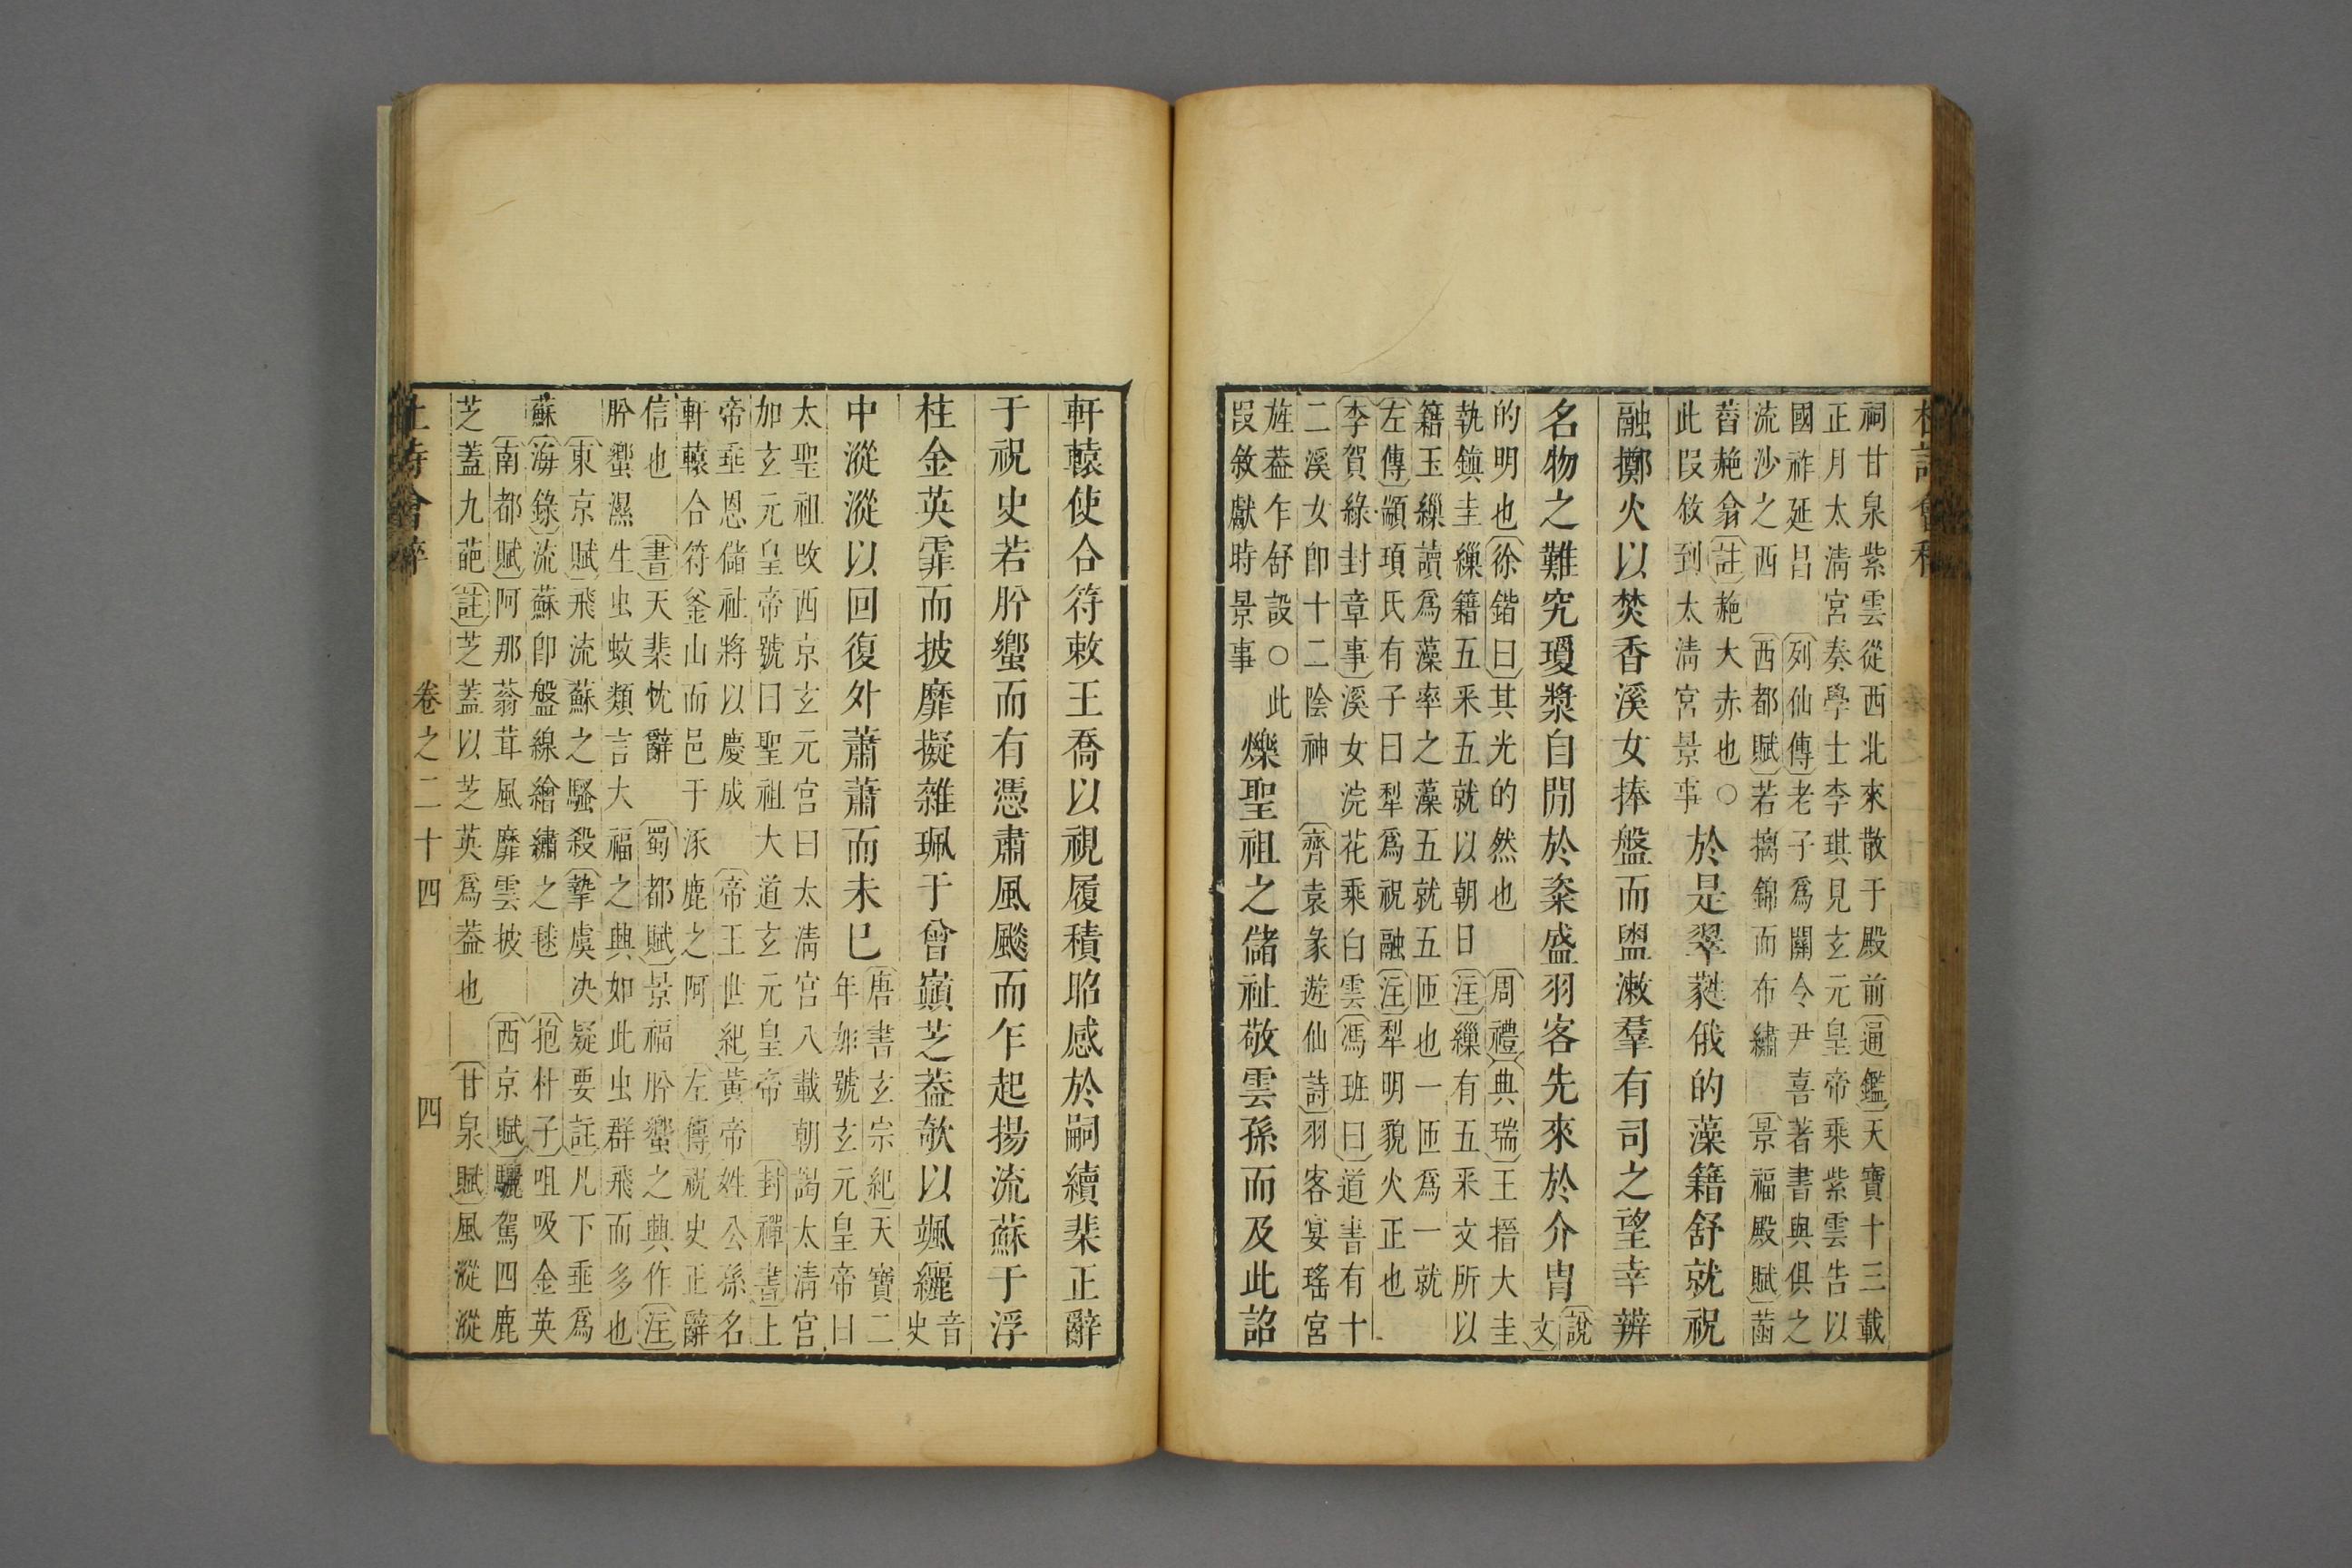 祠甘泉紫雲從西北來散于殿前通鑑天寶十三載
正月太淸宮奏學士李琪見玄元皇帝乘紫雲告以
國祚延昌 列仙傳老子爲關令尹喜著書與俱之
流沙之西 西都賦若摛錦而布繡 景福殿賦菡
萏赩翕註赩大赤也○
此段敘到太淸宮景事
於是翠蕤俄的藻籍舒就祝
融擲火以焚香溪女捧盤而盥漱羣有司之望幸辨
名物之難究瓊漿自閒於粢盛羽客先來於介胄
說
文
的明也徐鍇曰其光的然也 周禮典瑞王搢大圭
執鎮圭繅籍五采五就以朝日注繅有五采文所以
籍玉繅讀爲藻率之藻五就五匝也一匝爲一就
左傳顓頊氏有子曰犁爲祝融注犁明貌火正也
李賀綠封章事溪女浣花乘白雲馮班曰道書有十
二溪女卽十二陰神 齊袁彖遊仙詩羽客宴瑤宮
旌葢乍舒設○此
段敘獻時景事
爍聖祖之儲祉敬雲孫而及此詔
軒轅使合符敕王喬以視履積昭感於嗣續棐正辭
于祝史若肸蠁而有憑肅風颷而乍起揚流蘇于浮
柱金英霏而披靡擬雜珮于曾巔芝葢欹以颯纚
音
史
中漎漎以回復外蕭蕭而未已
唐書玄宗紀天寶二
年加號玄元皇帝曰
太聖祖改西京玄元宮曰太淸宮八載朝謁太淸宮
加玄元皇帝號曰聖祖大道玄元皇帝 封禪書上
帝垂恩儲祉將以慶成 帝王世紀黃帝姓公孫名
軒轅合符釜山而邑于涿鹿之阿 左傳祝史正辭
信也 書天棐忱辭 蜀都賦景福肸蠁之興作注
肸蠁濕生虫蚊類言大福之興如此虫群飛而多也
東京賦飛流蘇之騷殺摯虞决疑要註凡下垂爲
蘇海錄流蘇卽盤線繪繡之毬 抱朴子咀吸金英
南都賦阿那蓊茸風靡雲披 西京賦驪駕四鹿
芝蓋九葩註芝蓋以芝英爲葢也 甘泉賦風漎漎
卷之二十四
四